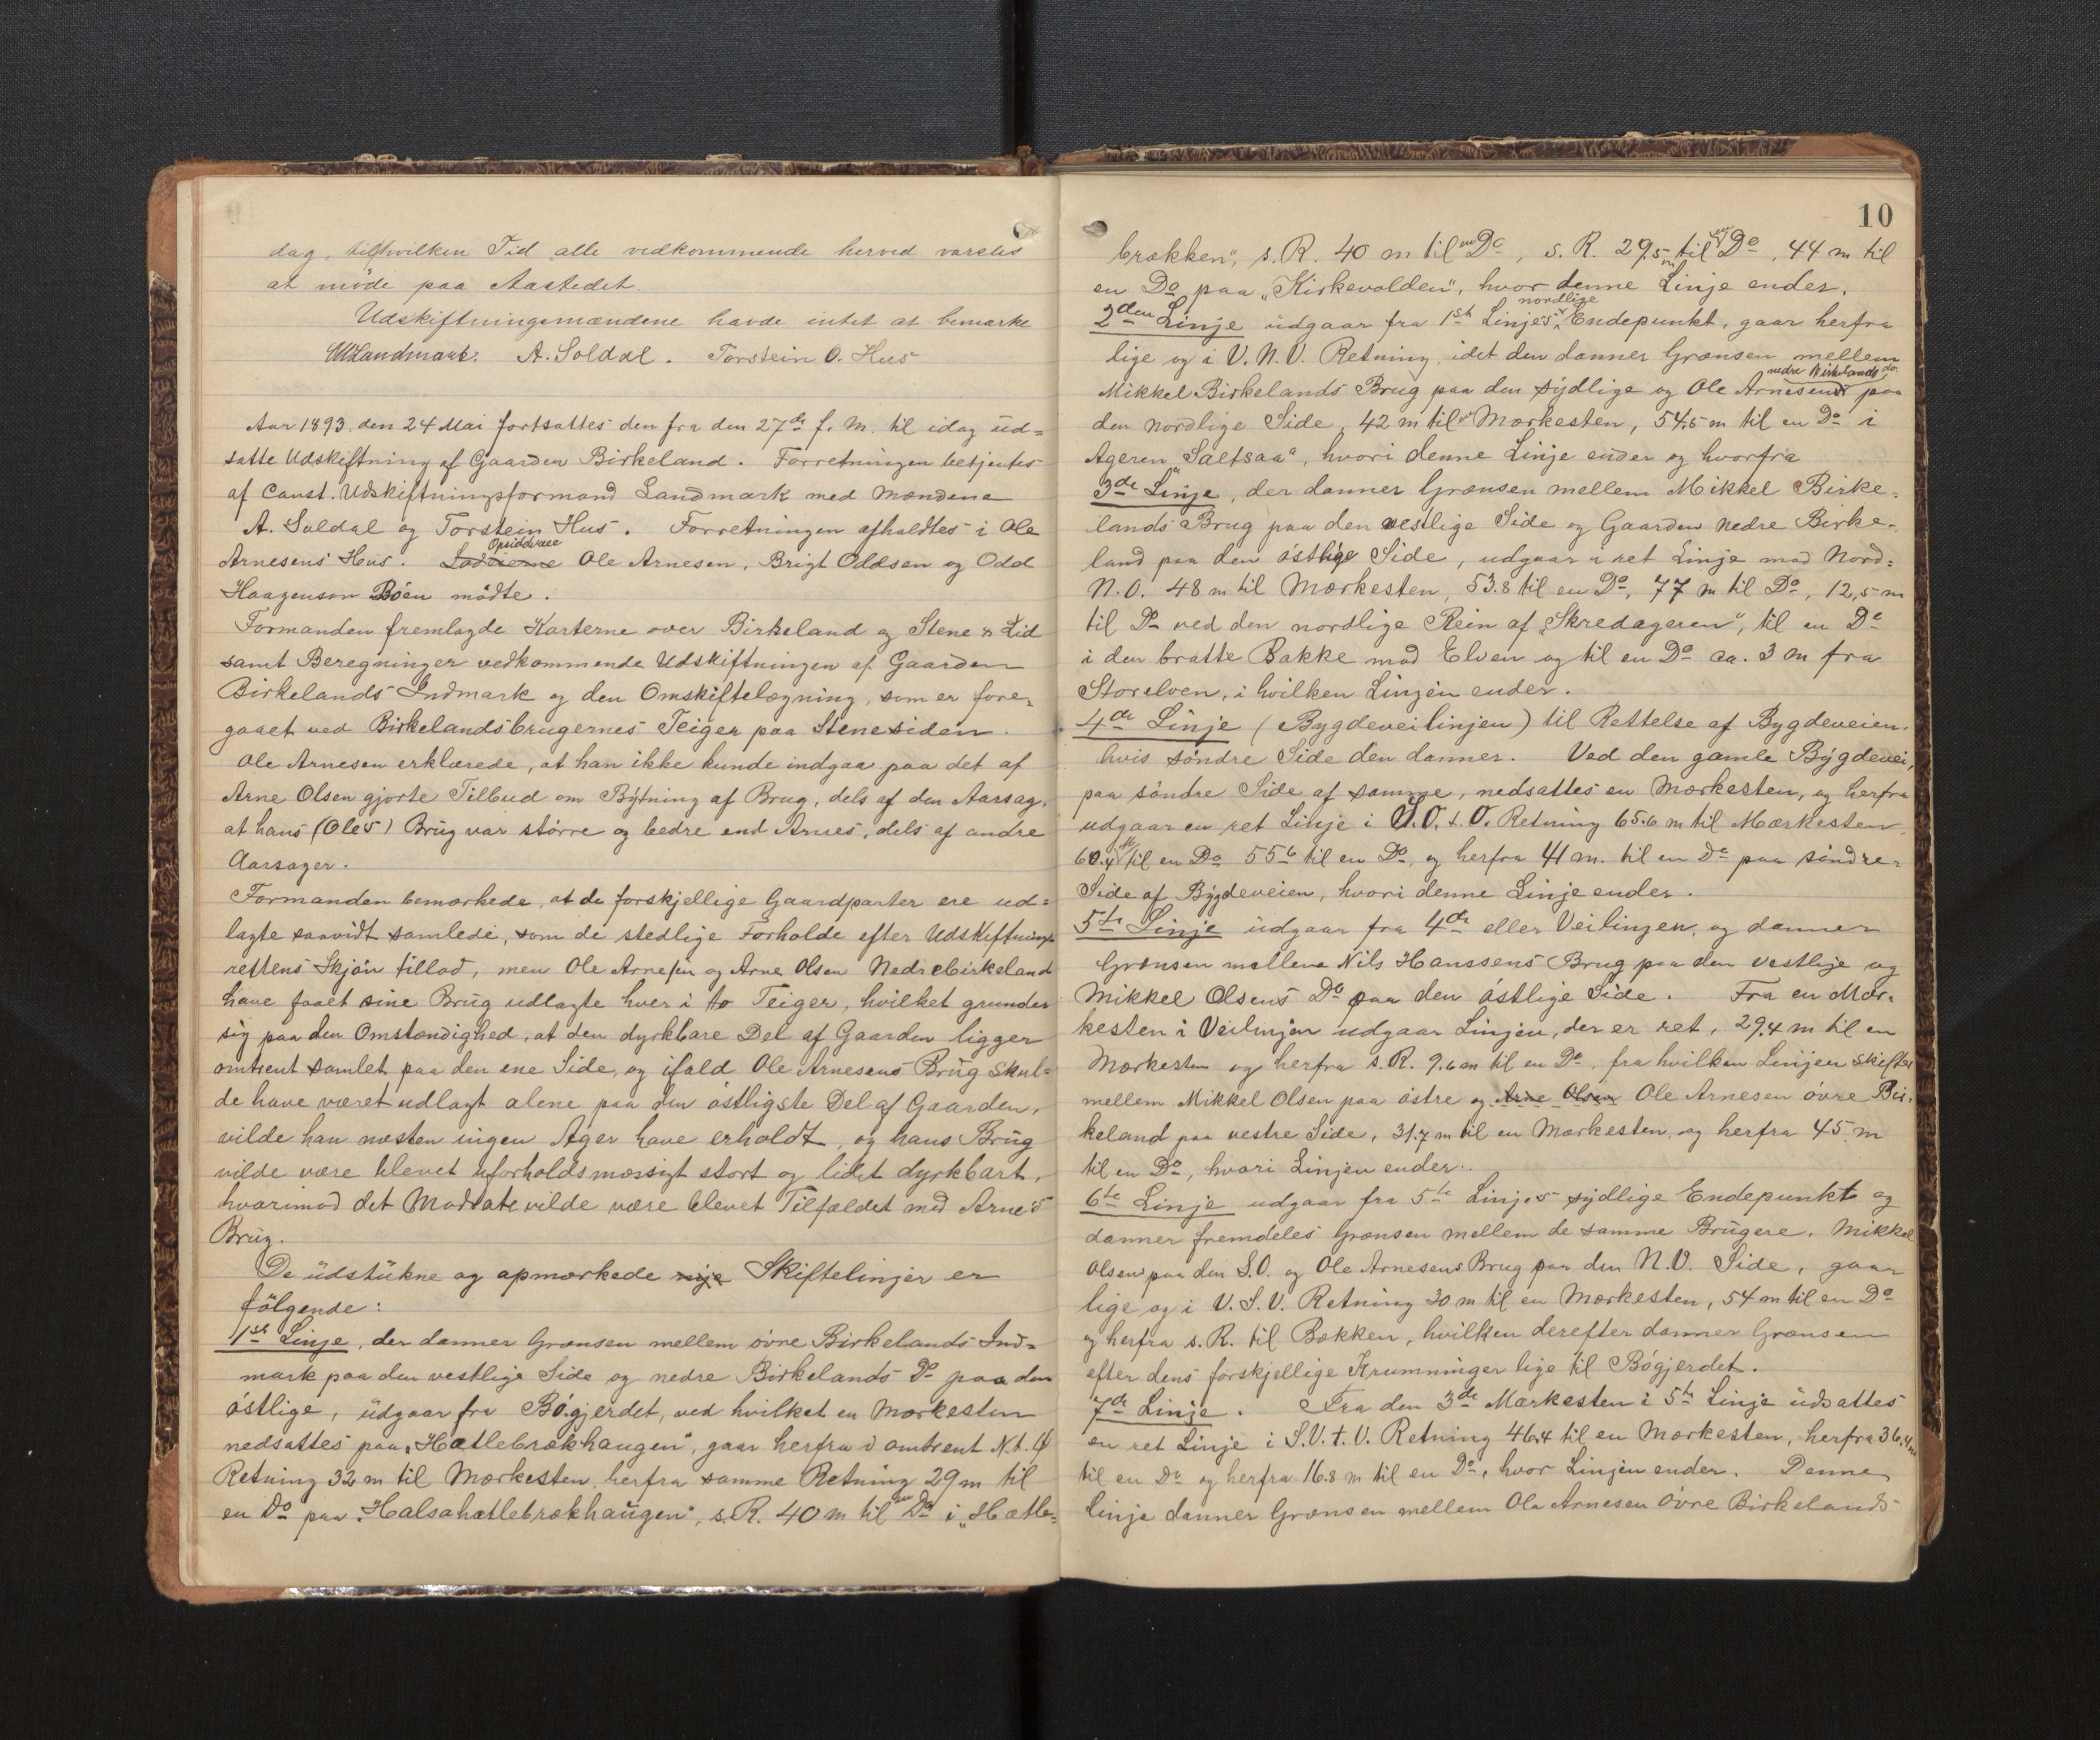 dag, til hvilken Tid alle vedkommende herved varsles
at möde paa Aastedet.
Udskiftningsmændene havde intet at bemærke
Landmark. A. Soldal. Torstein O. Hus
Aar 1893 den 24 Mai fortsattes den fra den 27de f. M. til idag ud=
satte Udskiftning af Gaarden Birkeland. Forretningen betjentes
af Const. Udskiftningsformand Landmark med Mændene
A. Soldal og Torstein Hus. Forretningen afholdtes i Ole
Arnesens Hus. Opsidderne Ole Arnesen, Brigt Oddsen og Odd
Haagenson Böen mödte.
Formanden fremlagde Karterne over Birkeland og Stene & Lid
samt Beregninger vedkommende Udskiftningen af Gaarden
Birkelands Indmark og den Omskiftelægning, som er fore=
gaaet ved Birkelandsbrugernes Teiger paa Stenesiden.
Ole Arnesen erklærede, at han ikke kunde indgaa paa det af
Arne Olsen gjorte Tilbud om Bÿtning af Brug, dels af den Aarsag,
at hans (Oles) Brug var större og bedre end Arnes, dels af andre
Aarsager.
Formanden bemærkede, at de forskjellige Gaardparter ere ud=
lagte saavidt samlede, som de stedlige Forholde efter Udskiftnings
rettens Skjön tillod, men Ole Arnesen og Arne Olsen Nedrebirkeland
have faaet sine Brug udlagte hver i to Teiger, hvilket grunder
sig paa den Omstændighed, at den dyrkbare Del af Gaarden ligger
omtrent samlet paa den ene Side, og ifald Ole Arnesens Brug skul=
de have været udlagt alene paa den östligste Del af Gaarden,
vilde han næsten ingen Ager have erholdt, og hans Brug
vilde være blevet uforholdsmæssigt stort og lidet dyrkbart,
hvorimod det Modsate vilde være blevet Tilfældet med Arnes
Brug.
De udstukne og opmærkede Skiftelinjer er
fölgende:
1ste Linje, der danner Grænsen mellem övre Birkelands Ind=
mark paa den vestlige Side og nedre Birkelands Do paa den
östlige, udgaar fra Bögjerdet, ved hvilket en Mærkesten
nedsattes paa "Hætlebrækhaugen", gaar herfra i omtrent N.t.Ø
Retning 32 m til Mærkesten, herfra samme Retning 29 m til
en Do paa "Halsahætlebrækhaugen", s.R. 40 m til en Do i "Hætle=
10
brækken", s.R. 40 m til en Do, s.R. 29,5 m til en Do, 44 m til
en Do paa "Kirkevolden", hvor denne Linje ender.
2den Linje udgaar fra 1ste Linjes nordlige Endepunkt, gaar herfra
lige og i V.N.V. Retning, idet den danner Grænsen mellem
Mikkel Birkelands Brug paa den sÿdlige og Ole Arnesens nedre Birkelands do. paa
den nordlige Side, 42 m til en Mærkesten, 54.5 m til en Do i
Ageren "Saltsaa", hvori denne Linje ender og hvorfra
3de Linje, der danner Grænsen mellem Mikkel Birke=
lands Brug paa den vestlige Side og Gaarden Nedre Birke=
land paa den östlige Side, udgaar i ret Linje mod Nord=
N.O. 48 m til Mærkesten, 53.8 til en Do, 77 m til Do, 12,5 m
til Do ved den nordlige Rein af "Skredageren", til en Do
i den bratte Bakke mod Elven og til en Do ca. 3 m fra
Storelven, i hvilken Linjen ender.
4de Linje (Bygdeveilinjen) til Rettelse af Bygdeveien,
hvis söndre Side den danner. Ved den gamle Bÿgdevei,
paa söndre Side af samme, nedsattes en Mærkesten, og herfra
udgaar en ret Linje i S.O.t.O. Retning 65.6 m til Mærkesten,
60.4 M til en Do 55.6 til en Do, og herfra 41 m. til en Do paa söndre=
Side af Bÿgdeveien, hvori denne Linje ender.
5te Linje udgaar fra 4de eller Veilinjen, og danner
Grænsen mellem Nils Hanssens Brug paa den vestlige og
Mikkel Olsens Do paa den östlige Side. Fra en Mær=
kesten i Veilinjen udgaar Linjen, der er ret, 29.4 m til en
Mærkesten og herfra s.R. 9.6 m til en Do, fra hvilken Linjen skifter
mellem Mikkel Olsen paa östre og Arne Olsen Ole Arnesen övre Bir=
keland paa vestre Side, 31.7 m til en Mærkesten, og herfra 45 m
til en Do, hvori Linjen ender.
6te Linje udgaar fra 5te Linjes sÿdlige Endepunkt og
danner fremdeles Grænsen mellem de samme Brugere, Mikkel
Olsen paa den S.O. og Ole Arnesens Brug paa den N.V. Side, gaar
lige og i V.S.V. Retning 30 m til en Mærkesten, 54 m til en Do
og herfra s.R. til Bækken, hvilken derefter danner Grænsen
efter dens forskjellige Krumninger lige til Bögjerdet.
7de Linje. Fra den 3de Mærkesten i 5te Linje udsattes
en ret Linje i S.V.t.V. Retning 46.4 til en Mærkesten, herfra 36.4 m
til en Do og herfra 16.8 m til en Do, hvor Linjen ender. Denne
Linje danner Grænsen mellem Ole Arnesen Övre Birkelands